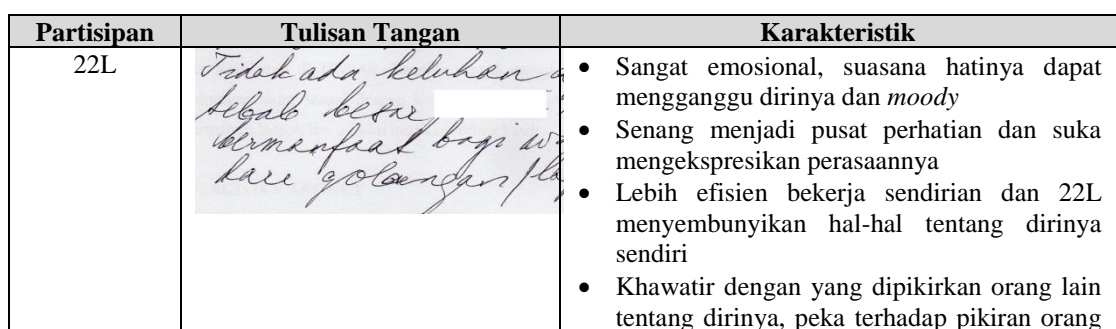 Partisipan Tulisan Tangan Karakteristik
22L
Tidak ada keluhan
sebab besar
bermanfaat bagi
dari golongan
• Sangat emosional, suasana hatinya dapat
mengganggu dirinya dan moody
• Senang menjadi pusat perhatian dan suka
mengekspresikan perasaannya
• Lebih efisien bekerja sendirian dan 22L
menyembunyikan hal-hal tentang dirinya
sendiri
• Khawatir dengan yang dipikirkan orang lain
tentang dirinya, peka terhadap pikiran orang